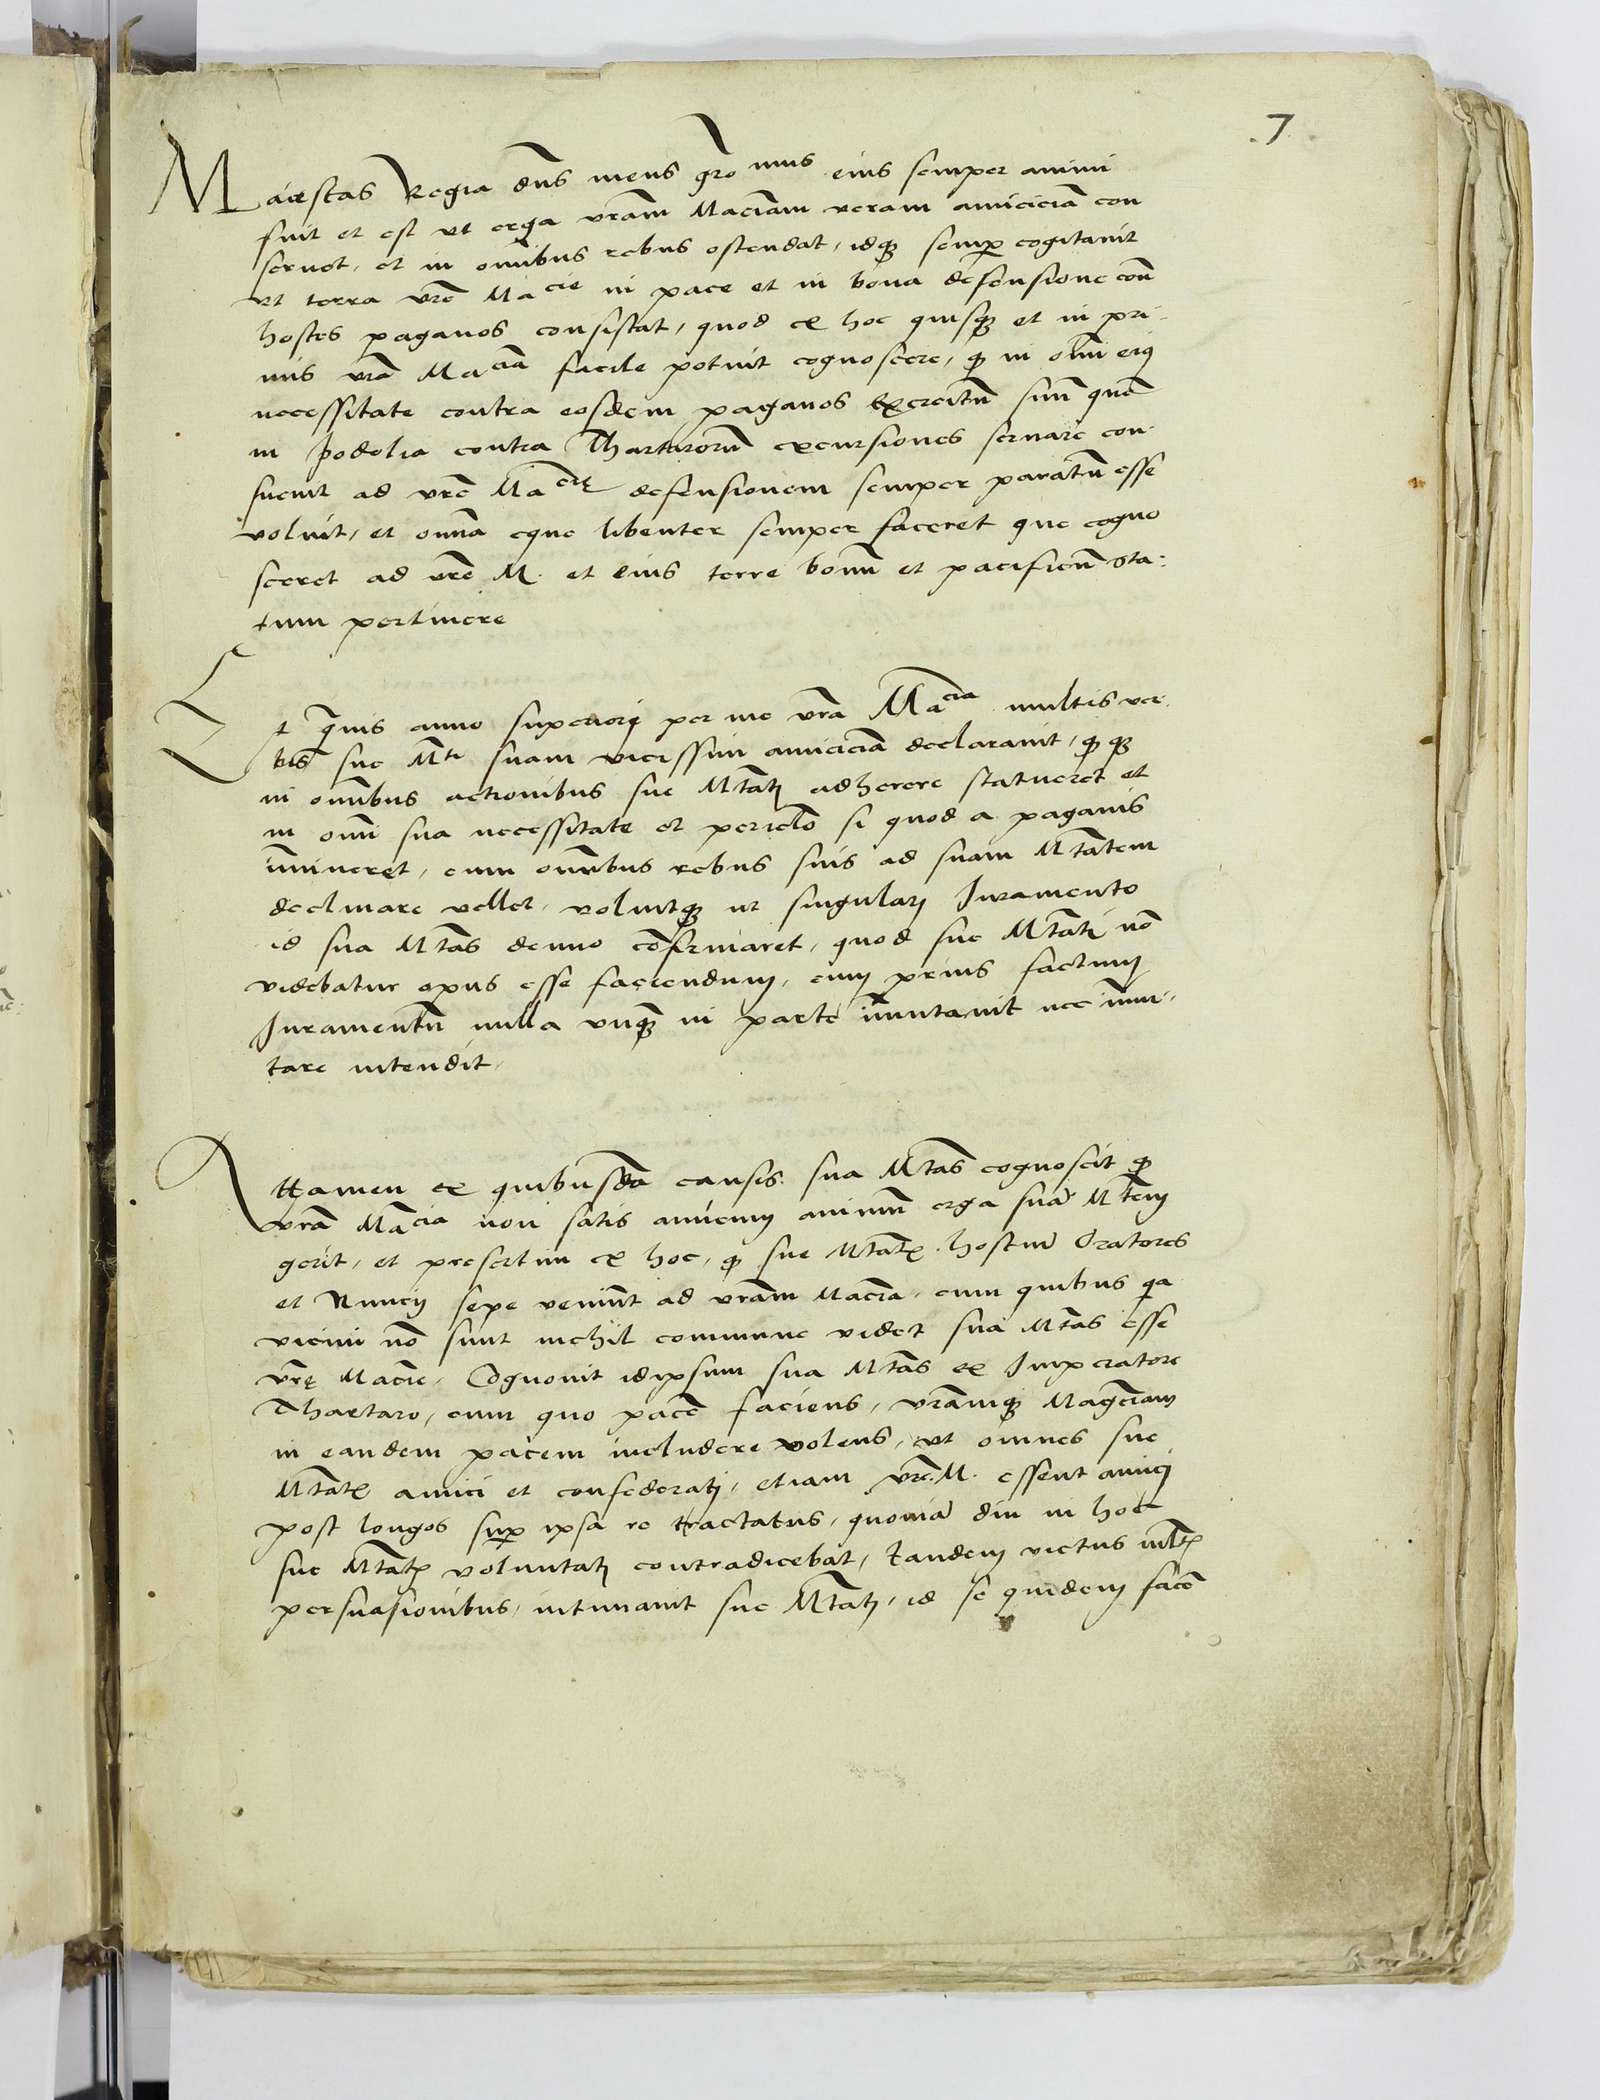 7
Maiestas Regia dns meus gro mus eius semper animi
fuit et est ut erga vram Maciam veram amiciciã con
servet, et in omibus rebus ostendat, idq semp cogitavit
ut terra vre Macie in pace et in bona defensione con
hostes paganos consistat, quod ex hoc quisq et in pri
mis vra Macia facile potuit cognoscere, q in omi eius
necessitate contra eosdem paganos exercitu suu que
in Podolia contra Thartaroru excursiones servare con
suevit ad vre Macie defensionem semper paratu esse
voluit, et omia eque libenter semper faceret que cogno
sceret ad vre M. et eius terre bonu et pacificu sta:
tum pertinere
Et qvis anno superiori per me vra Macia multis ver
bis sue Mti suam vicissim amiciciã declaravit, q q
in omibus actionibus sue Mtati adherere statueret et
in omi sua necessitate et periclo si quod a paganis
imineret, cum omibus rebus suis ad suam Mtatem
declinare vellet, voluitq ut singulari Iuramento
id sua Mtas denuo cofirmaret, quod sue Mtati no
videbatur opus esse faciendum, cum prius factum
Iuramentu nulla unq in parte imutavit nec imu
tare intendit.
Attamen ex quibusda causis sua Mtas cognoscit q
vra Macia non satis amicum animu erga sua Mtem
gerit, et presertim ex hoc, q sue Mtatis hostiu Oratores
et Nuncii sepe veniut ad vram Macia, cum quibus qa
vicini no sunt nichil commune videt sua Mtas esse
vre Macie. Cognovit idipsum sua Mtas ex Imperatore
Thartaro, cum quo pace faciens, vramq Magciam
in eandem pacem includere volens, ut omnes sue
Mtatis amici et confederati, etiam vre. M. essent amici
post longos sup ipsa re tractatus, quonia diu in hoc
sue Mtatis voluntati contradicebat, tandem victus mltis
persuasionibus, intimavit sue Mtati, id se quidem face